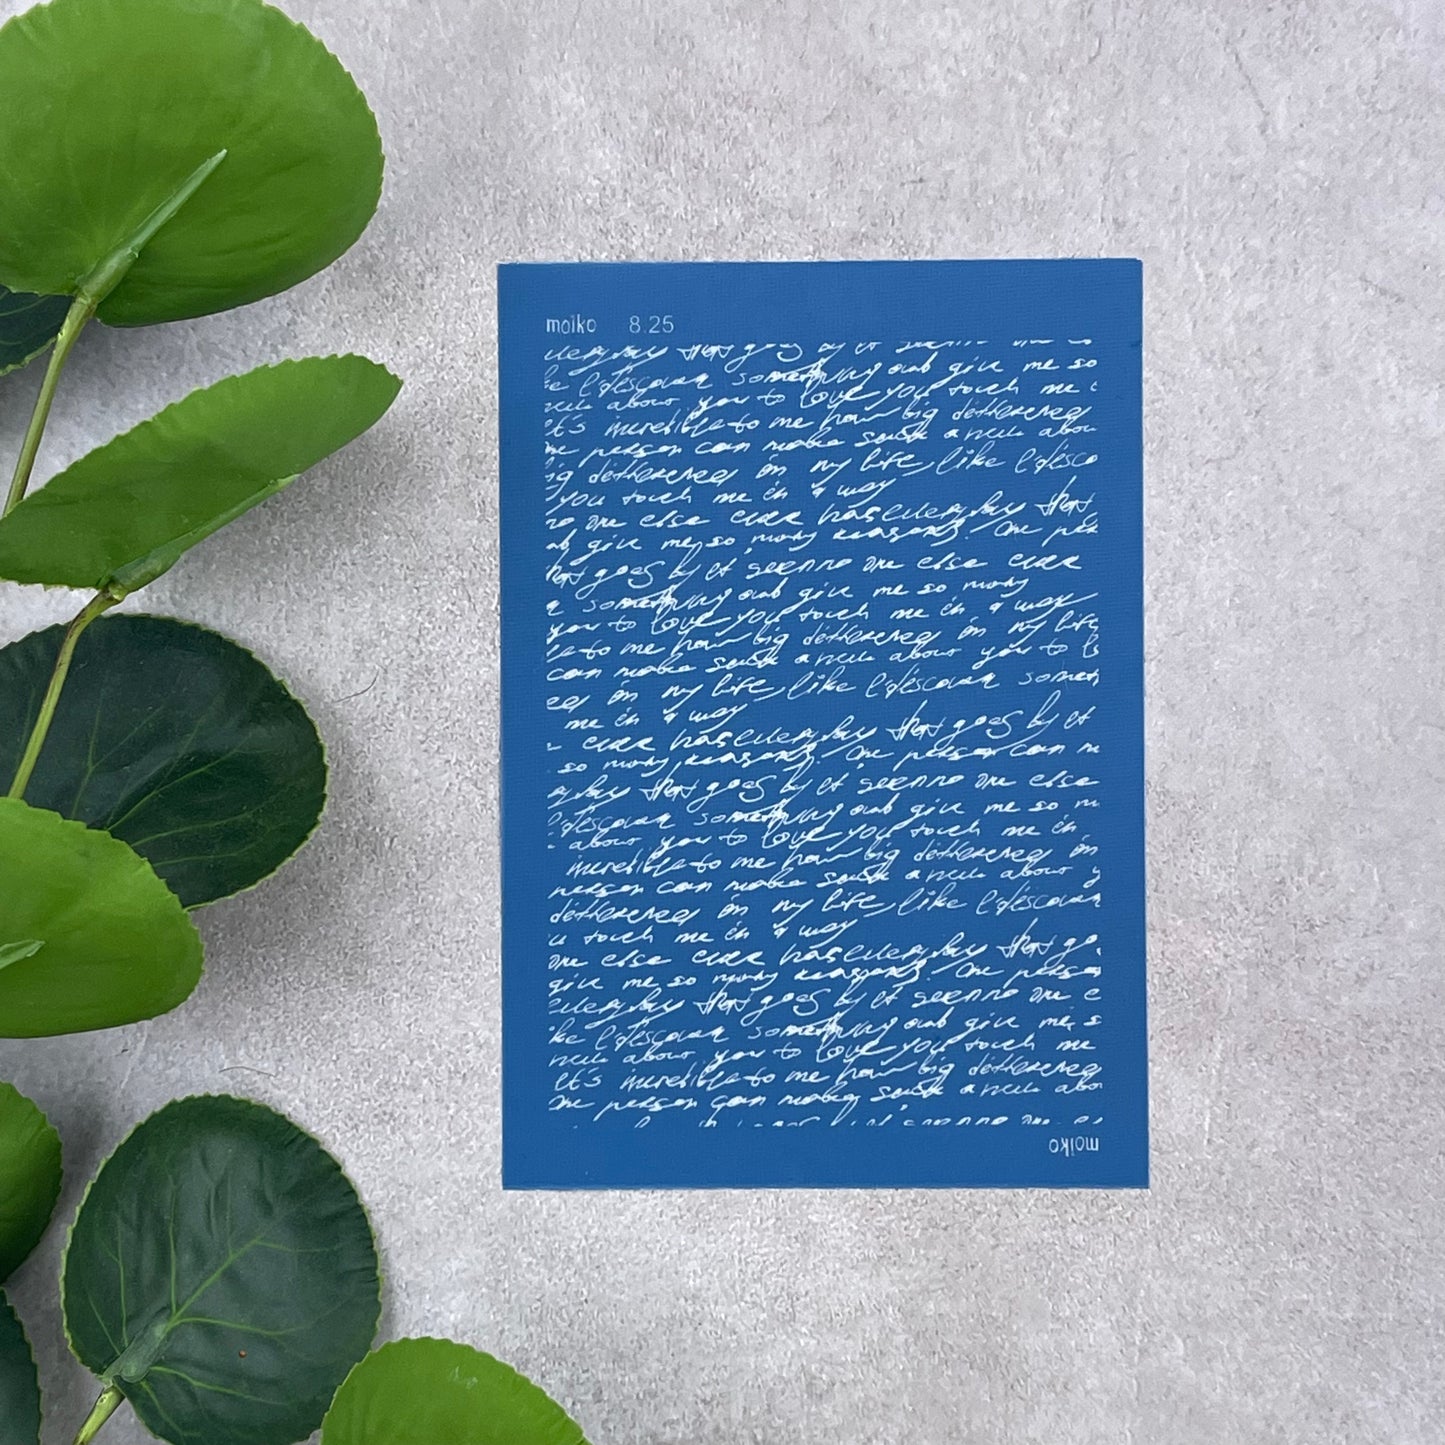 moiko 8.25
everyday that goes by it seen no one
like I discover something and give me so
about you to love you touch me
it's incredible to me how big difference
one person can make such a about
big difference in my life, like I disco
you touch me in a way
no one else ever has everyday that
give me so many reasons. One per
that goes by it seen no one else ever
something and give me so many
you to love you touch me in a way
to me how big difference in my life,
can make such a about you to lo
in my life, like I discover someth
me in a way
ever has everyday that goes by it
so many reasons. One person can m
everyday that goes by it seen no one else
I discover something and give me so m
about you to love you touch me in
incredible to me how big difference in
person can make such a about y
difference in my life, like I discover
touch me in a way
one else ever has everyday that go
give me so many reasons. One person
everyday that goes by it seen no one e
like I discover something and give me s
about you to love you touch me
it's incredible to me how big difference
One person can make such a abo
moiko